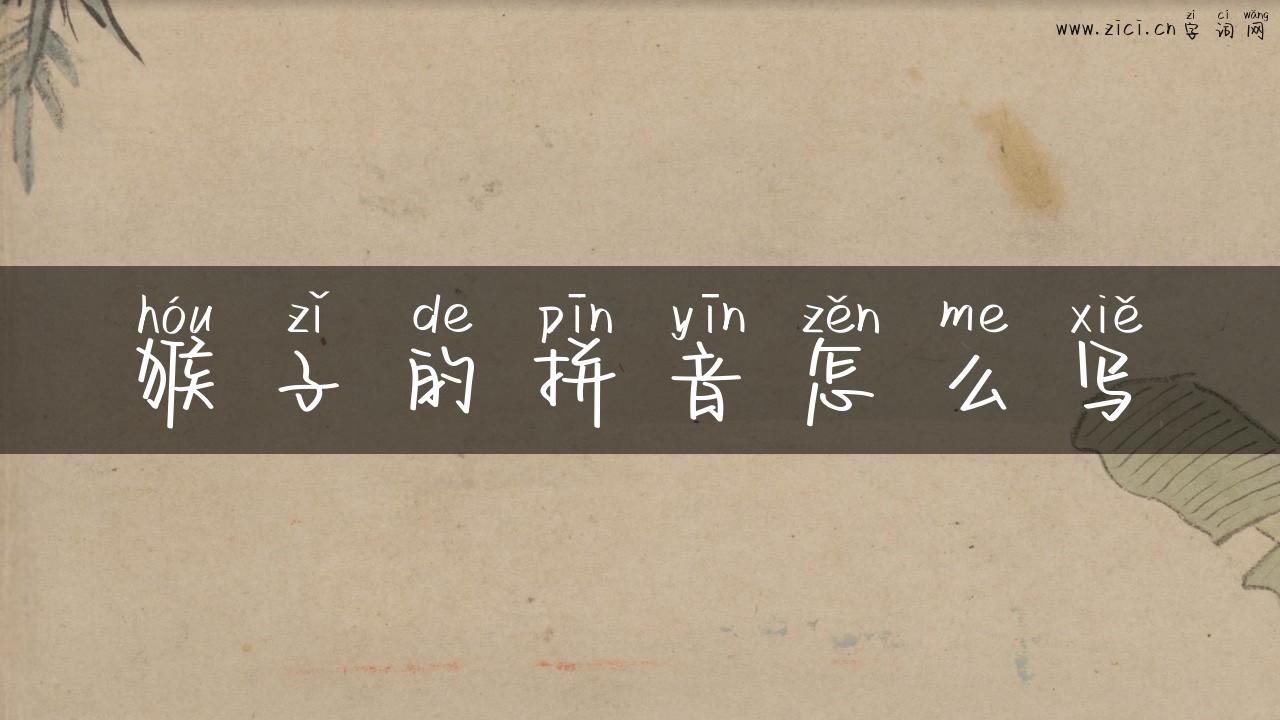 zì cí wǎng
www.zici.cn 字词网
hóu zǐ de pīn yīn zěn me xiě
猴子的拼音怎么写